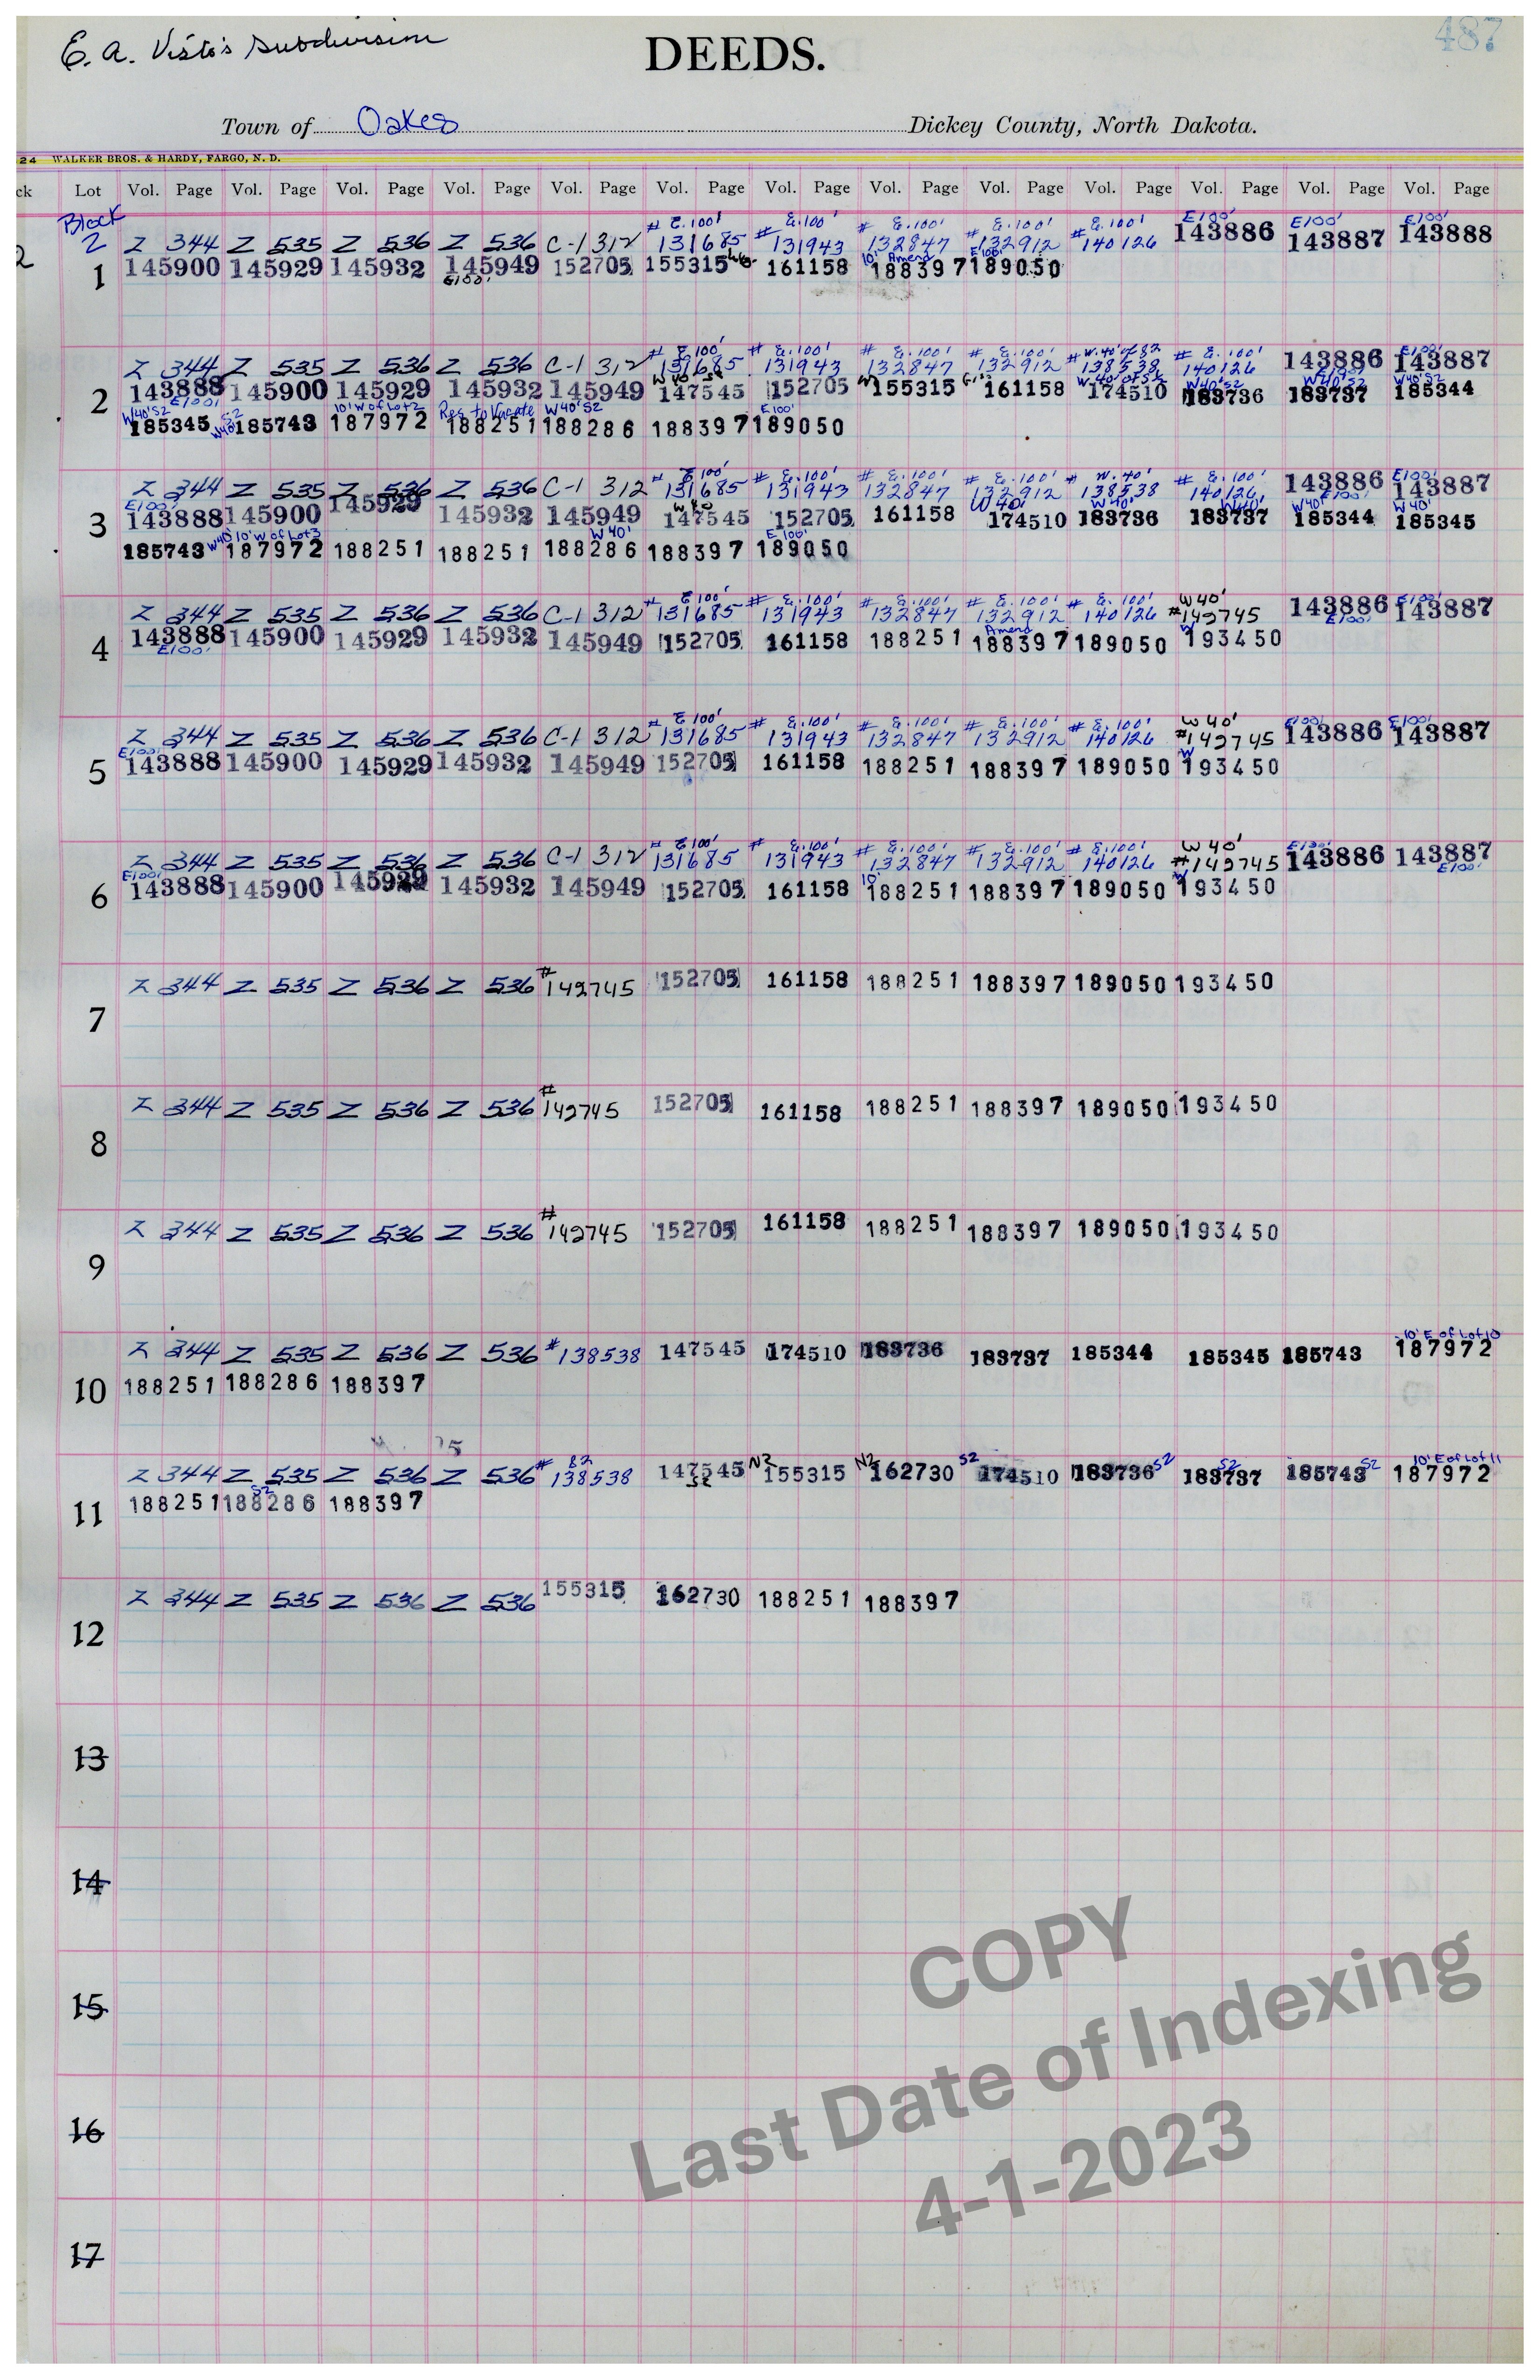 487
E. A. Visto's Subdivision
DEEDS.
Town of Oakes Dickey County, North Dakota.
24 WALKER BROS. & HARDY, FARGO, N. D.
ck Lot Vol. Page Vol. Page Vol. Page Vol. Page Vol. Page Vol. Page Vol. Page Vol. Page Vol. Page Vol. Page Vol. Page Vol. Page Vol. Page
Block # E.100' # E.100' # E.100' # E.100' # E.100' E100' E100' E100'
2 2 Z 344 Z 535 Z 536 Z 536 C-1 312 131685 131943 132847 132912 140126 143886 143887 143888
10' Amend E100'
1 145900 145929 145932 145949 152705 155315 161158 188397 189050
E100'
# E.100' # E.100' # E.100' # E.100' # W.40' of S2 # E.100' E100'
Z 344 Z 535 Z 536 Z 536 C-1 312 131685 131943 132847 132912 138538 140126 143886 143887
W 40' S2 W 40' of S2 W40' S2 E100' W40' S2 W40' S2
2 143888 145900 145929 145932 145949 147545 152705 155315 161158 174510 183736 183737 185344
W40' S2 E100' S2 W40' 10' W of Lot 2 Req to Vacate W40' S2 E100'
185345 185743 187972 188251 188286 188397 189050
# E100' # E.100' # E.100' # E.100' # W.40' # E.100' E100'
Z 344 Z 535 Z 536 Z 536 C-1 312 131685 131943 132847 132912 138538 140126 143886 143887
E100' W 40' W40' W40' E100' W40' W40' W40'
3 143888 145900 145929 145932 145949 147545 152705 161158 174510 183736 183737 185344 185345
W40' 10' W of Lot 3 W40' E100'
185743 187972 188251 188251 188286 188397 189050
# E100' # E.100' # E.100' # E.100' # E.100' W40' E100'
Z 344 Z 535 Z 536 Z 536 C-1 312 131685 131943 132847 132912 140126 #142745 143886 143887
E100' Amend W
4 143888 145900 145929 145932 145949 152705 161158 188251 188397 189050 193450
E100'
# E100' # E.100' # E.100' # E.100' # E.100' W 40' E100' E100'
Z 344 Z 535 Z 536 Z 536 C-1 312 131685 131943 132847 132912 140126 #142745 143886 143887
E100' W
5 143888 145900 145929 145932 145949 152705 161158 188251 188397 189050 193450
# E100' # E.100' # E.100' # E.100' # E.100' W 40' E100'
Z 344 Z 535 Z 536 Z 536 C-1 312 131685 131943 132847 132912 140126 #142745 143886 143887
E100' 10' W E100'
6 143888 145900 145929 145932 145949 152705 161158 188251 188397 189050 193450
7 Z 344 Z 535 Z 536 Z 536 #142745 152705 161158 188251 188397 189050 193450
8 Z 344 Z 535 Z 536 Z 536 #142745 152705 161158 188251 188397 189050 193450
9 Z 344 Z 535 Z 536 Z 536 #142745 152705 161158 188251 188397 189050 193450
10' E of Lot 10
Z 344 Z 535 Z 536 Z 536 #138538 147545 174510 183736 183737 185344 185345 185743 187972
10 188251 188286 188397
# S2 N2 N2 S2 S2 S2 S2 10' E of Lot 11
Z 344 Z 535 Z 536 Z 536 138538 147545 155315 162730 174510 183736 183737 185743 187972
S2 S2
11 188251 188286 188397
12 Z 344 Z 535 Z 536 Z 536 155315 162730 188251 188397
13
14
15
16
17
COPY
Last Date of Indexing
4-1-2023